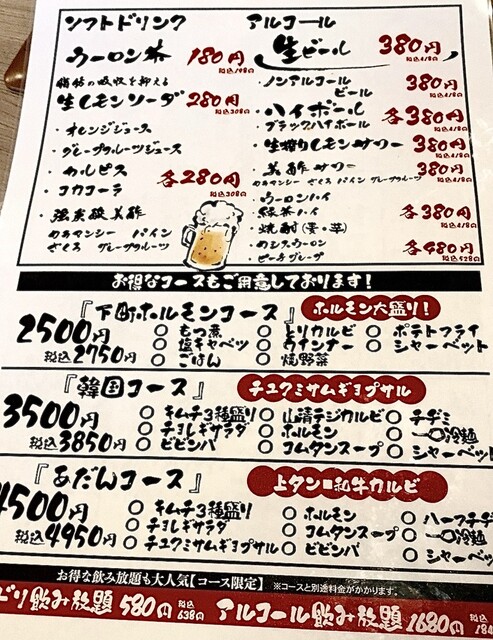 ソフトドリンク
ウーロン茶 180円
税込198円
脂肪の吸収を抑える
生レモンソーダ 280円
税込308円
・オレンジジュース
・グレープフルーツジュース
・カルピス
・コカコーラ
各280円
税込308円
・強炭酸美酢
カラマンシー パイン
ざくろ グレープフルーツ
アルコール
生ビール 380円
税込418円
・ノンアルコールビール 380円
税込418円
・ハイボール
ブラックハイボール
各380円
税込418円
・生搾りレモンサワー 380円
税込418円
・美酢サワー 380円
税込418円
カラマンシー ざくろ パイン グレープフルーツ
・ウーロンハイ
・緑茶ハイ
・焼酎(麦・芋)
各380円
税込418円
・カシスウーロン
・ピーチグレープ
各480円
税込528円
お得なコースもご用意しております!
『下町ホルモンコース』 ホルモン大盛り!
2500円
税込2750円
○もつ煮 ○とりカルビ ○ポテトフライ
○塩キャベツ ○ウインナー ○シャーベット
○ごはん ○焼野菜
『韓国コース』 チュクミサムギョプサル
3500円
税込3850円
○キムチ3種盛り ○山賊デジカルビ ○チヂミ
○チョレギサラダ ○ホルモン ○一口冷麺
○ビビンバ ○コムタンスープ ○シャーベット
『あだんコース』 上タンロ和牛カルビ
4500円
税込4950円
○キムチ3種盛り ○ホルモン ○ハーフチヂ
○チョレギサラダ ○コムタンスープ ○一口冷麺
○チュクミサムギョプサル ○ビビンバ ○シャーベッ
お得な飲み放題も大人気【コース限定】 ※コースと別途料金がかかります。
どり飲み放題 580円 税込638円 アルコール飲み放題 1680円 税込184